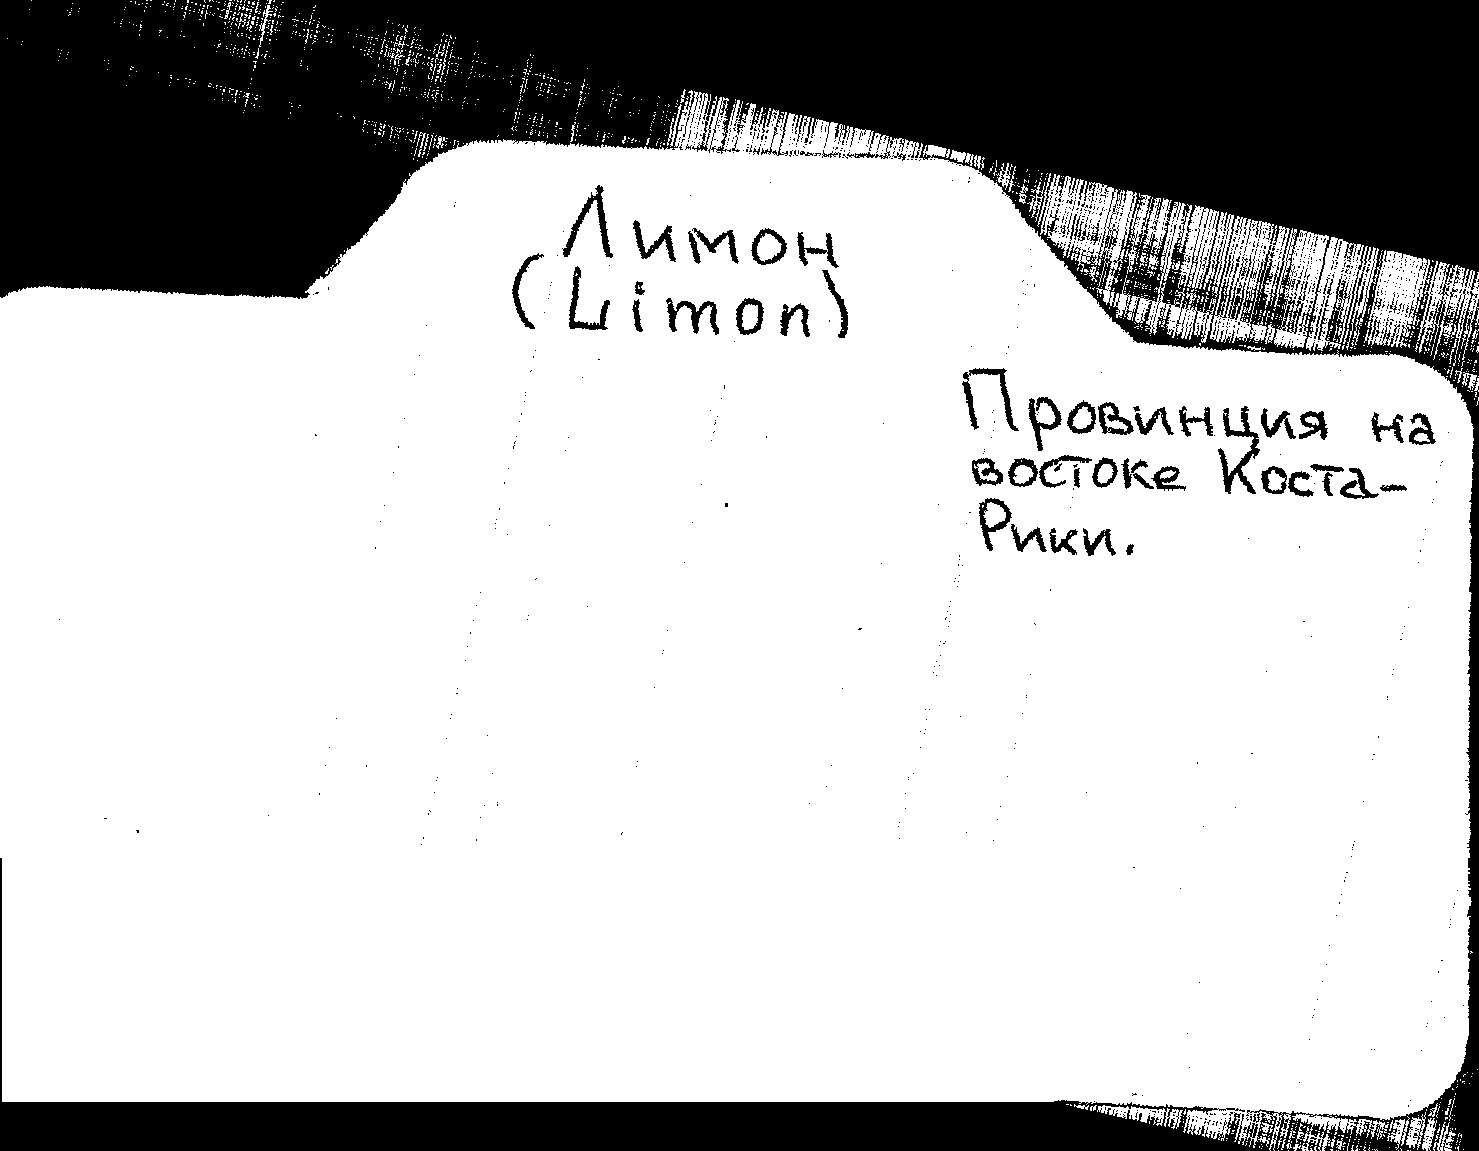 Лимон
(Limon)
Провинция на
востоке Коста-
Рики.